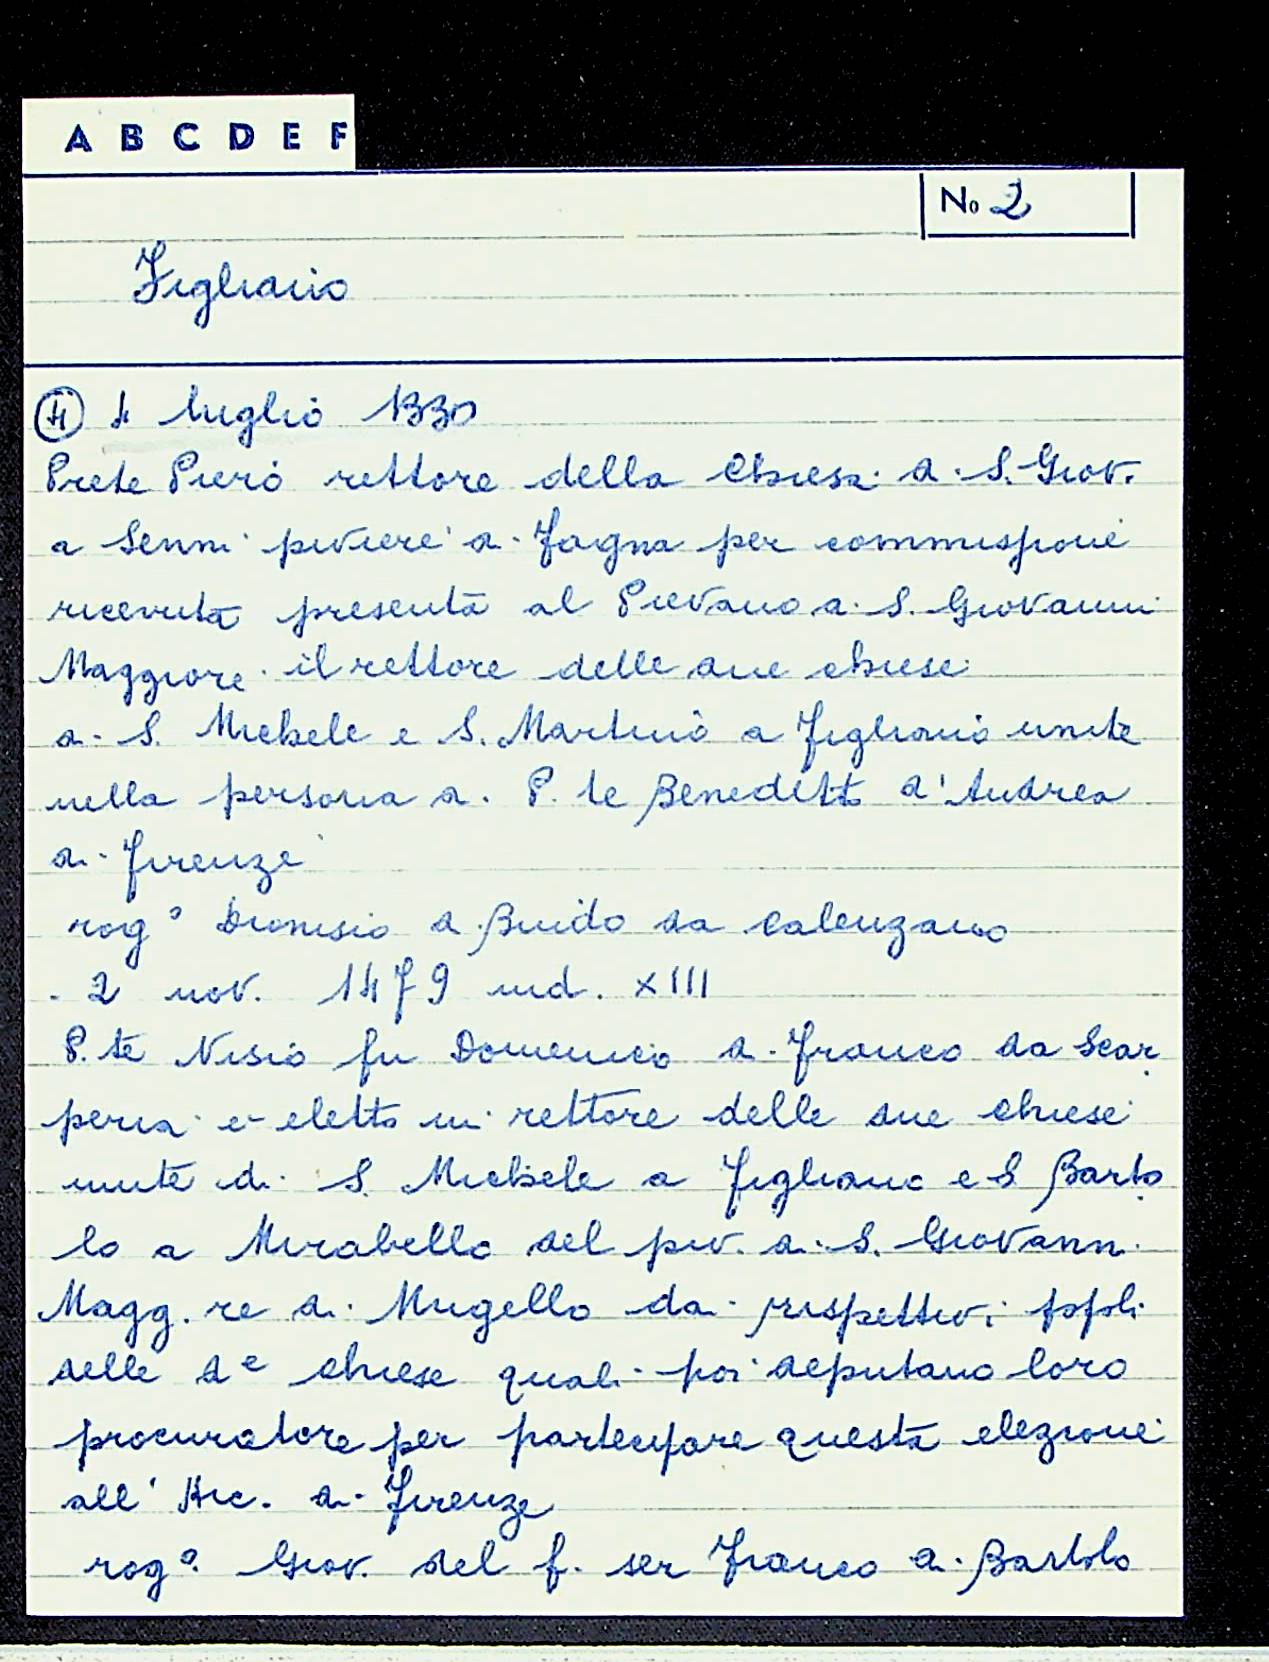 A B C D E F
No 2
Figliano
4 4 luglio 1330
Prete Piero rettore della Chiesa di S. Giov.
a Senni piviere di Fagna per commissione
ricevuta presenta al Pievano di S. Giovanni
Maggiore il rettore delle due chiese
di S. Michele e S. Martino a Figliano unite
nella persona di P.te Benedetto d'Andrea
di Firenze
rog° Dionisio di Guido da Calenzano
- 2 nov. 1479 ind. XIII
P.te Nisio fu Domenico di Franco da Scar
peria è eletto in rettore delle due chiese
unite di S. Michele a Figliano e S Barto
lo a Mirabello del piv. di S. Giovanni
Magg.re di Mugello dai rispettivi popoli
delle de chiese quali poi deputano loro
procuratore per partecipare questa elezione
all' Arc. di Firenze
rog° Giov. del f. ser Franco di Bartolo